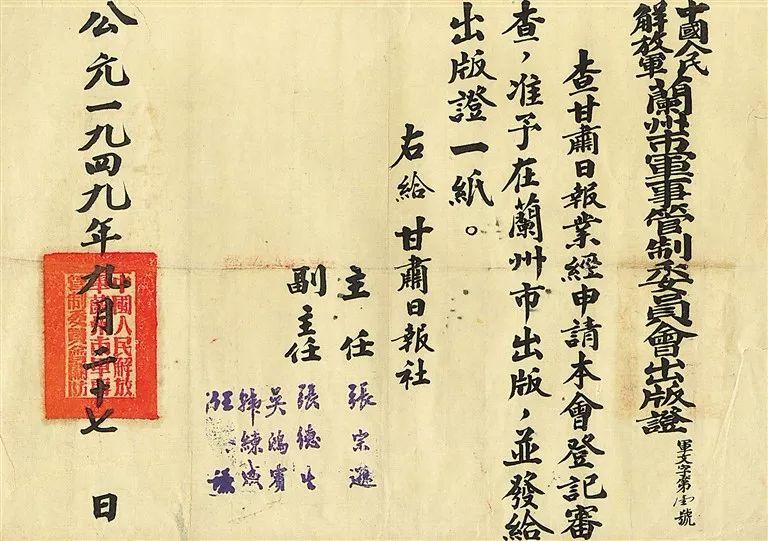 中國人民
解放軍
蘭州市軍事管制委員會出版證
軍文字第壹號
查甘肅日報業經申請本會登記審
查，准予在蘭州市出版，並發給
出版證一紙。
右給 甘肅日報社
主任 張宗遜
副主任 張德生
吳鴻賓
韓練成
謙
公元一九四九年九月二十七日
中國人民解放
軍蘭州市軍事
管制委員會關防